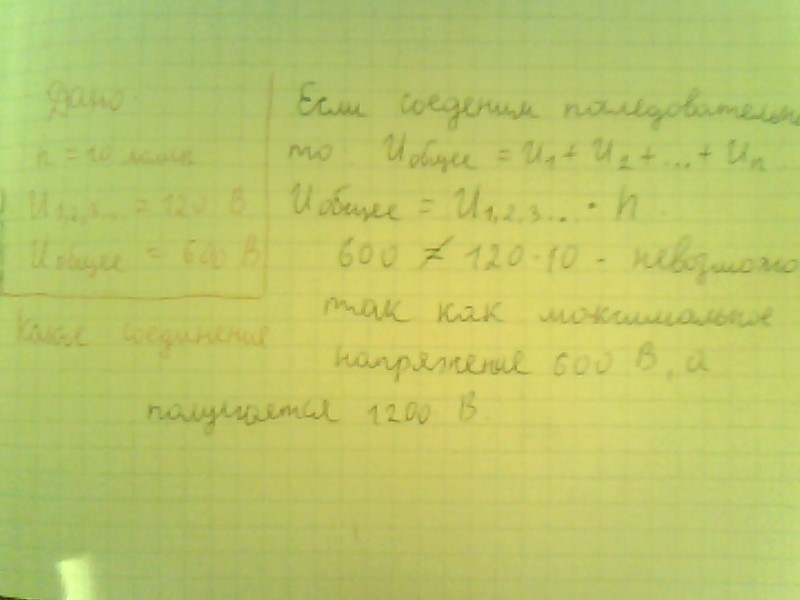 Дано
n = 10 ламп
U1,2,3... = 120 В
Uобщее = 600 В
какое соединение
Если соеденим последовательно
то Uобщее = U1 + U2 + ... + Un
Uобщее = U1,2,3... · n
600 ≠ 120·10 - невозможно
так как максимальное
напряжение 600 В, а
получается 1200 В